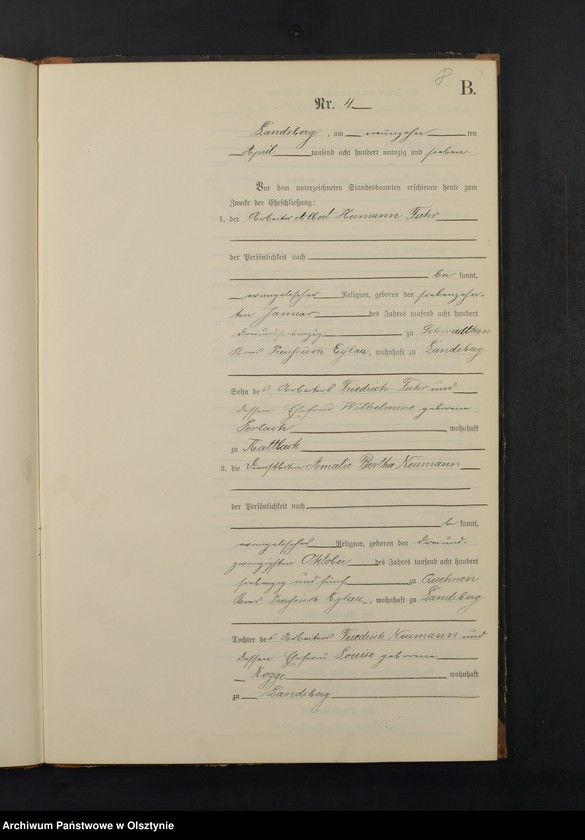 8
B.
Nr. 4
Landsberg, am neunzehn ten
April tausend acht hundert neunzig und sieben.
Vor dem unterzeichneten Standesbeamten erschienen heute zum
Zwecke der Eheschließung:
1. der Arbeiter Albert Hermann Fuhr
der Persönlichkeit nach
be kannt,
evangelischer Religion, geboren den siebenzehn-
ten Januar des Jahres tausend acht hundert
dreiundsiebenzig zu Schwadtken
Kreis Preußisch Eylau, wohnhaft zu Landsberg
Sohn des Arbeiters Friedrich Fuhr und
dessen Ehefrau Wilhelmine geborene
Gerlach wohnhaft
zu
2. die Dienstboten Amalie Bertha Neumann
der Persönlichkeit nach,
be kannt,
evangelischer Religion, geboren den dreiund-
zwanzigsten Oktober des Jahres tausend acht hundert
siebenzig und fünf zu
Kreis Preußisch Eylau, wohnhaft zu Landsberg
Tochter des Arbeiters Friedrich Neumann und
dessen Ehefrau Louise geborene
Kogge wohnhaft
zu Landsberg
Archiwum Państwowe w Olsztynie